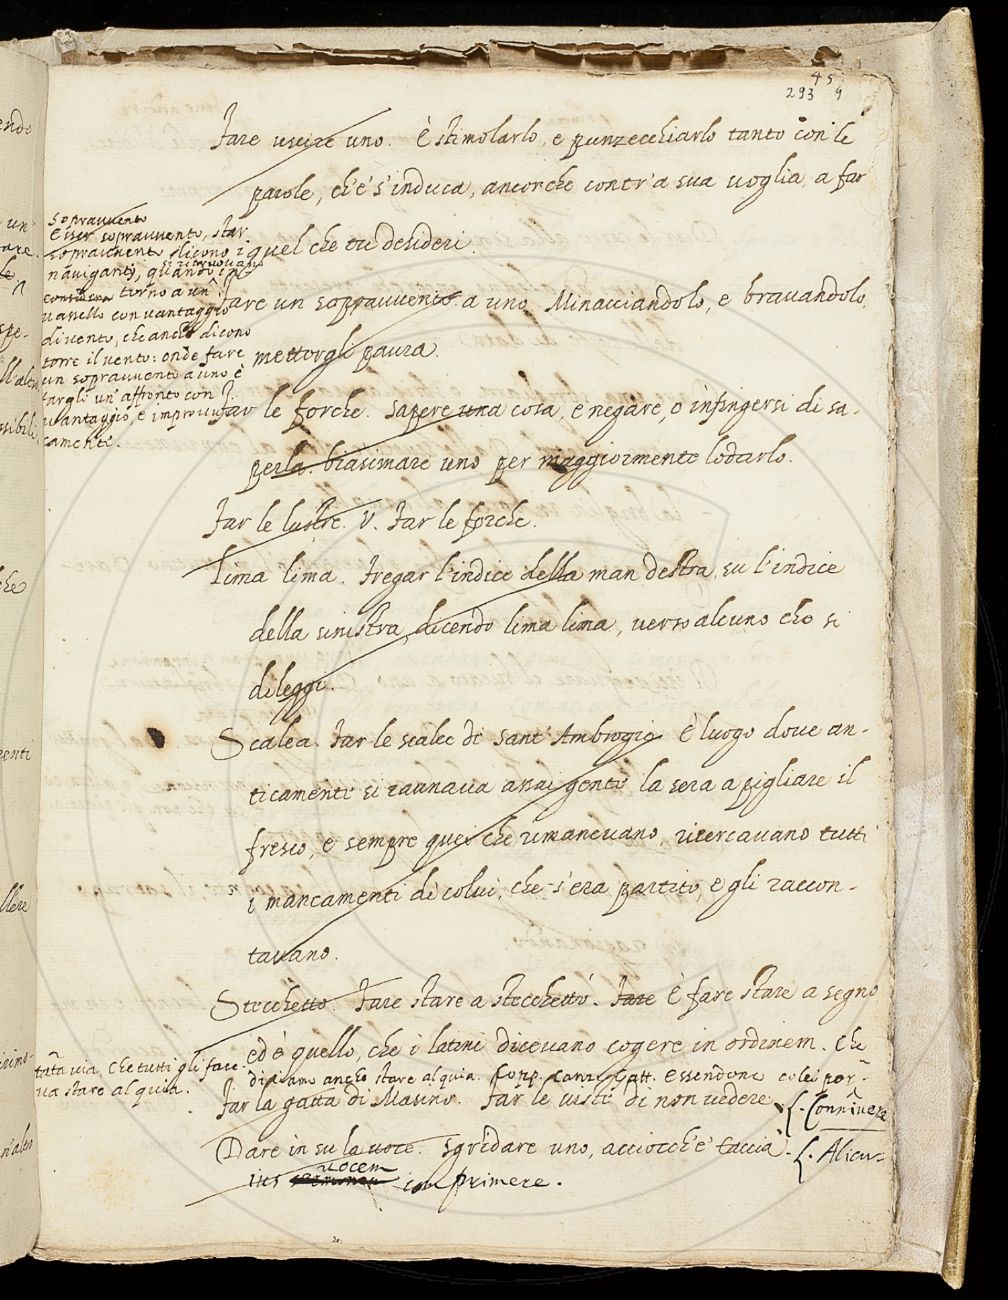 45
293 9
Fare uscire uno. è stimolarlo, e punzecchiarlo tanto con le
parole, che s'induca, ancorche contr'a sua uoglia, a far
quel che tu desideri.
Sopravvento
Esser sopravvento, star
sopravvento dicono i
naviganti, quando
si ritrovano
torno a un
vasello con vantaggio
di vento, che anche dicono
torre il vento: onde fare
un sopravvento a uno è
fargli un affronto con
vantaggio, e improvvisa-
camente.
Fare un soprauuento a uno. Minacciandolo, e brauandolo,
mettergli paura.
Far le forche. Sapere una cosa, e negare, o infingersi di sa-
perla. biasimare uno per maggiormente lodarlo.
Far le lustre. V. Far le forche.
Lima lima. Fregar l'indice della man destra, su l'indice
della sinistra, dicendo lima lima, uerso alcuno che si
dileggi.
Scalea. Far le scalee di Sant'Ambrogio. È luogo doue an-
ticamente si raunaua assai gente la sera a pigliare il
fresco, e sempre quei che rimaneuano, ricercauano tutti
i mancamenti di colui, che s'era partito, e gli raccon-
tauano.
Stecchetto. Fare stare a stecchetto. Fare È fare stare a segno
ed è quello, che i latini diceuano cogere in ordinem. Che
diciamo ancho stare al quia. Copp. Canz. Gatt. Essendone colei por-
tata via, che tutti gli face-
va stare al quia.
Far la gatta di Masino. Far le uiste di non uedere. L. Connivere
Dare in su la uoce. Sgridare uno, acciocch'e' taccia. L. Alicu-
ius
vocem
comprimere.